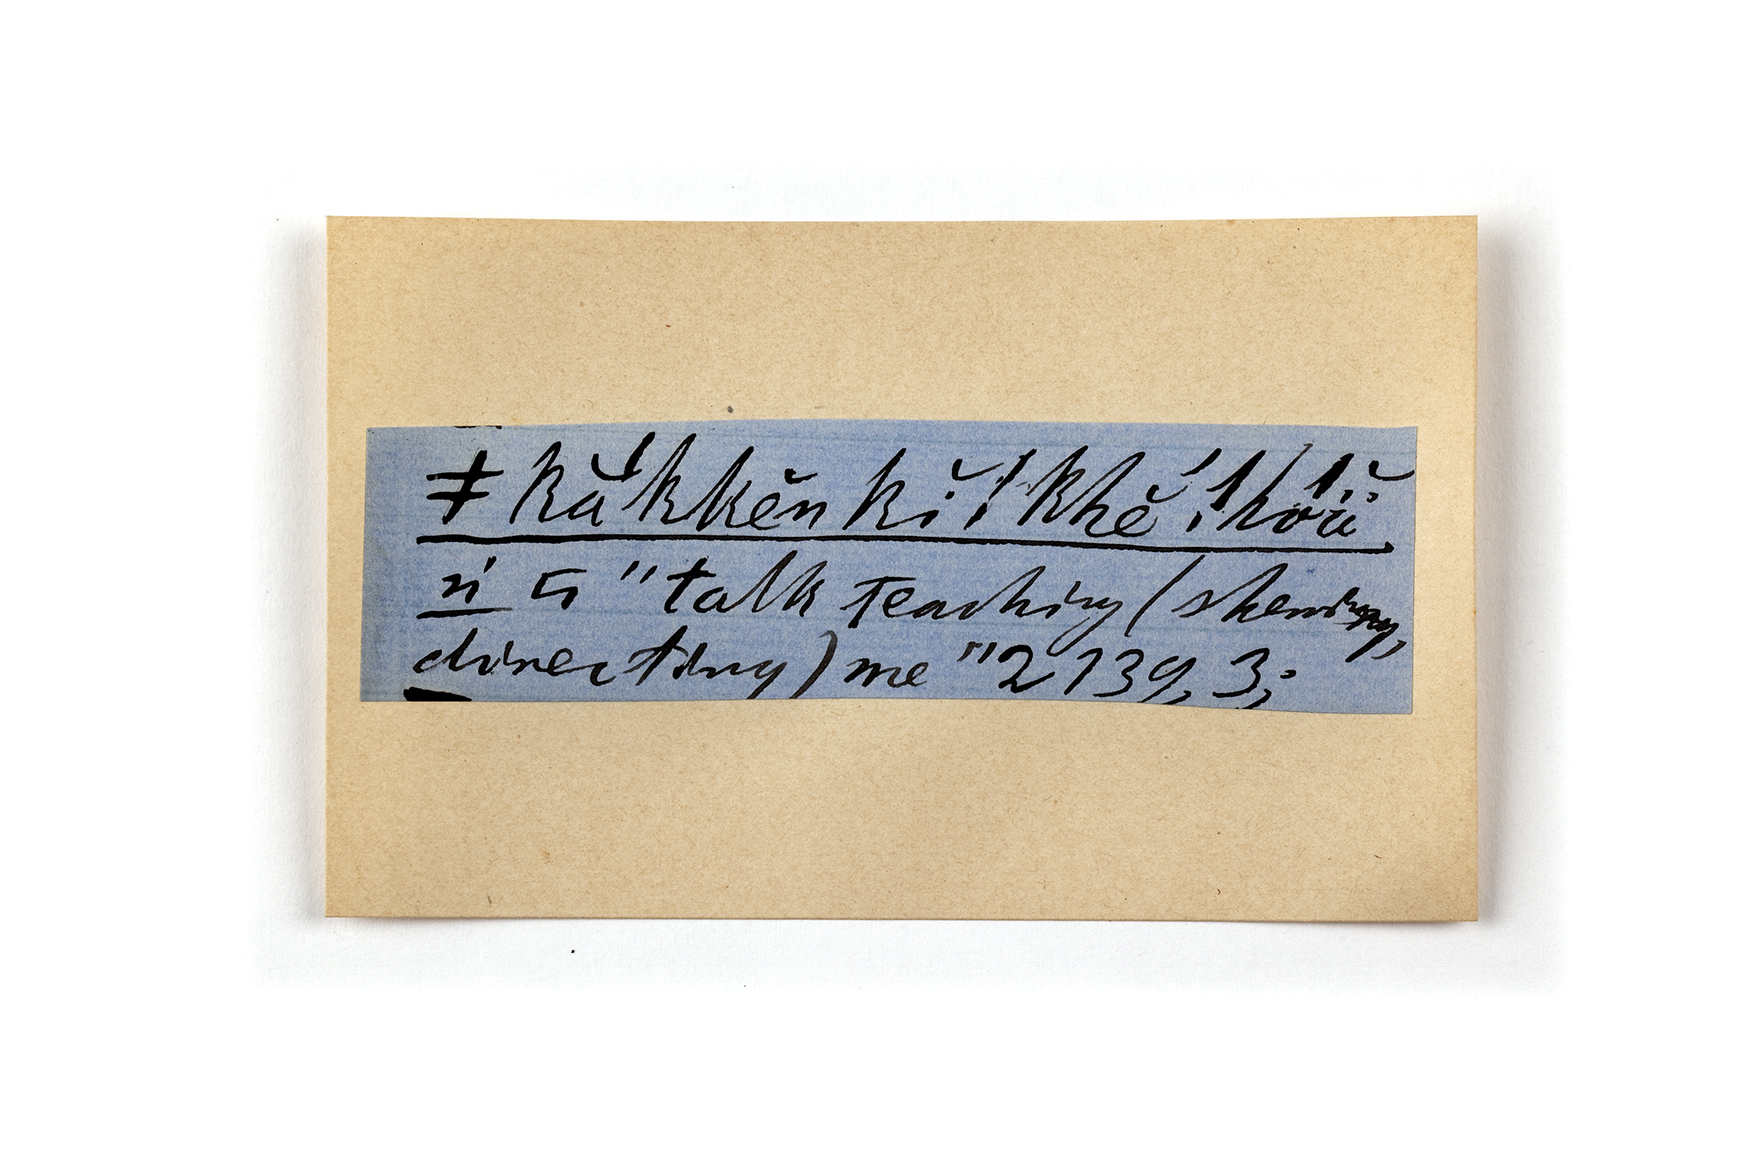 ǂkắkkĕn kĭ !khĕ́ !hṍä̆
ń 5 "talk teaching (shewing,
directing) me" 2139, 3;